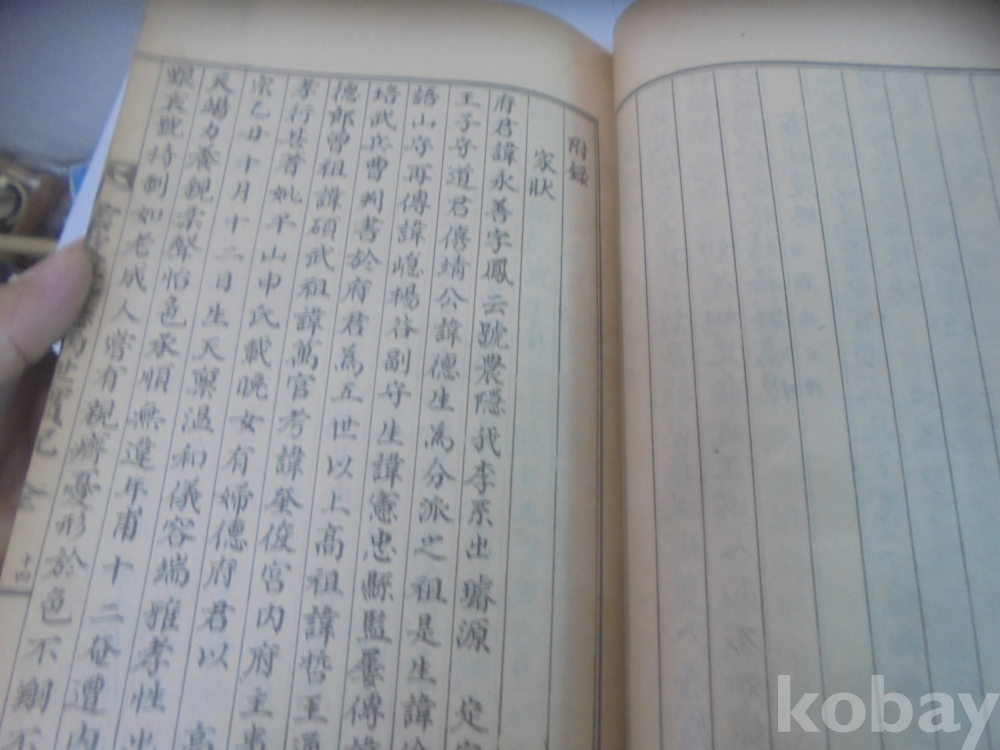 附録
家狀
府君諱永善字鳳云號農隱我李系出璿源 定宗
王子守道君僖靖公諱德生為分派之祖是生諱
語山守再傳諱 楊谷副守生諱憲忠縣監屢傳
培武兵曹判書於府君為五世以上高祖諱哲
德郎曾祖諱碩武祖諱萬官考諱奎俊宮內府主事
孝行甚著妣平山申氏載曉女有婦德府君以 高
宗乙丑十月十二日生天稟溫和儀容端雅孝性出
天竭力養親柔聲怡色承順無違年甫十二奄遭內
艱哀毀持制如老成人嘗有親癠憂形於色不翔不
世實記 全
十四
kobay